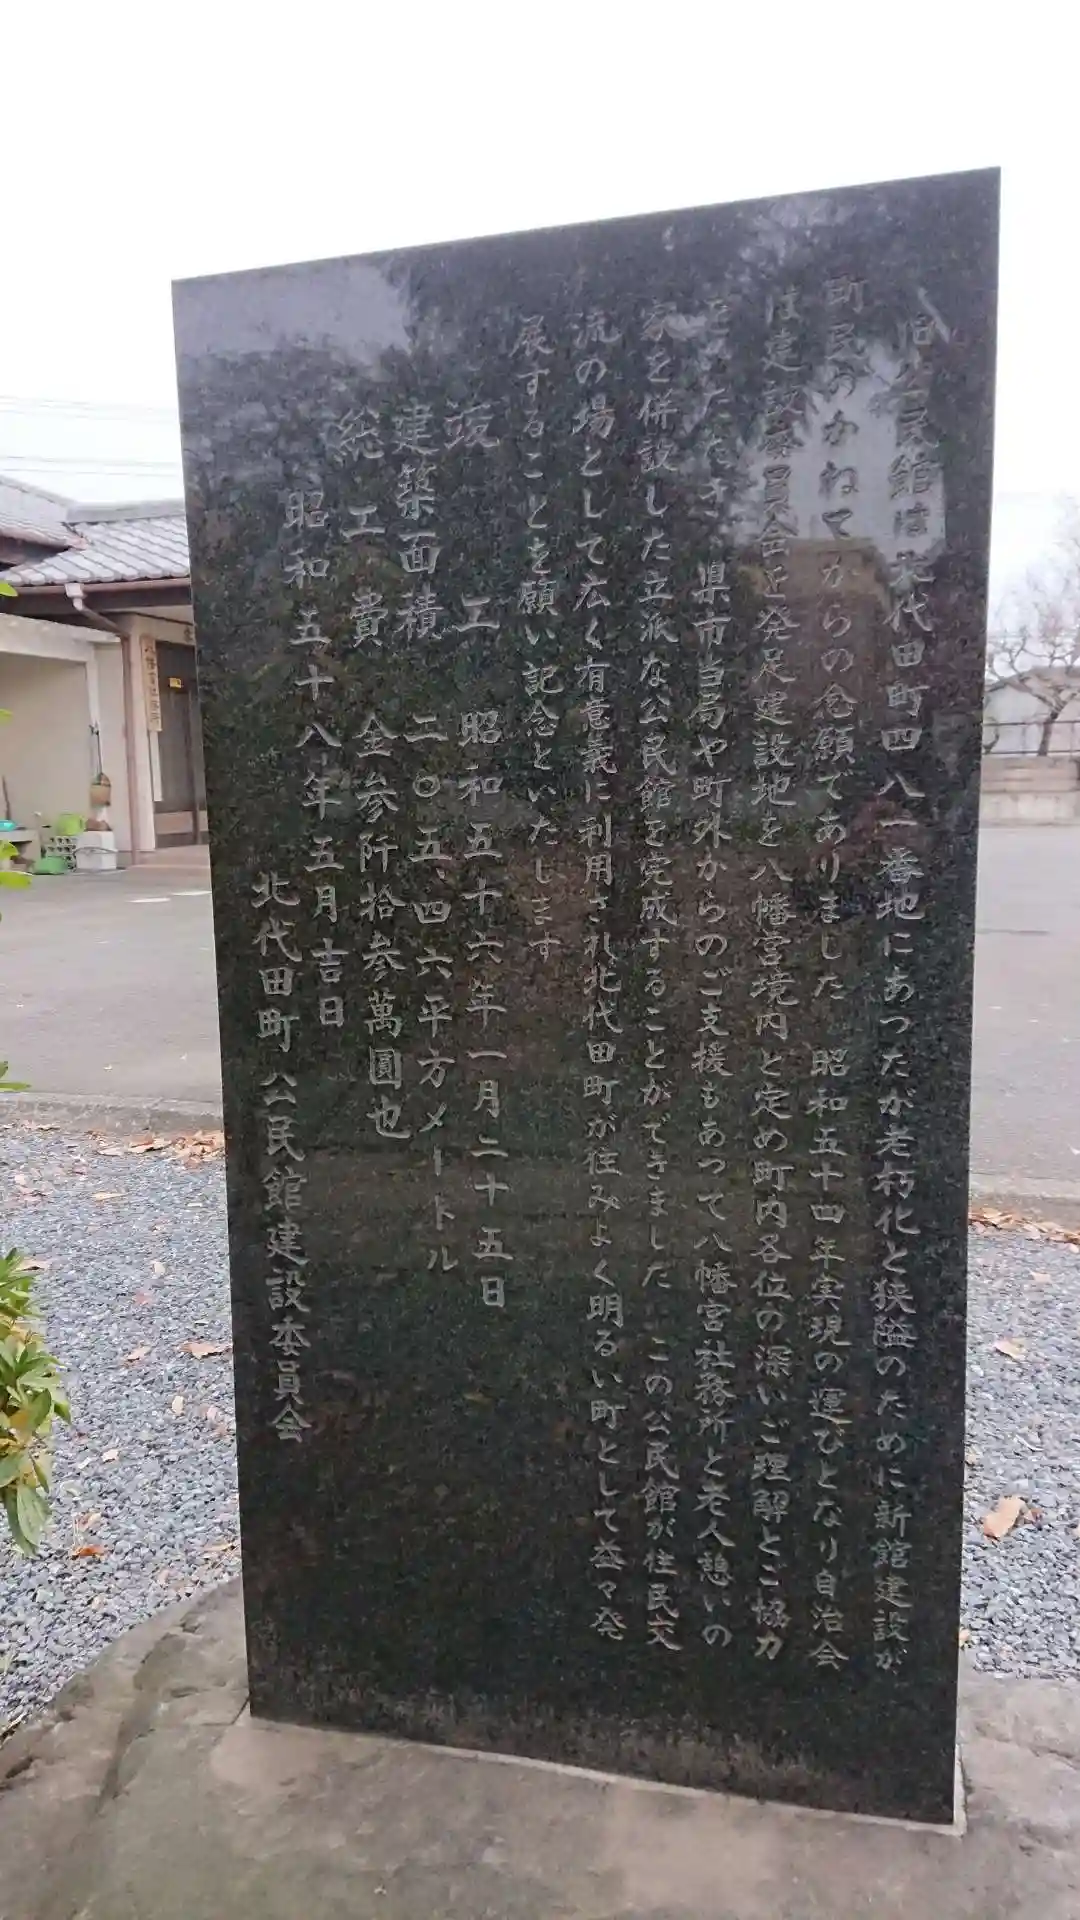 旧公民館は北代田町四八一番地にあつたが老朽化と狭隘のために新館建設が
町民のかねてからの念願でありました 昭和五十四年実現の運びとなり自治会
は建設委員会を発足建設地を八幡宮境内と定め町内各位の深いご理解とご協力
をいたたき 県市当局や町外からのご支援もあつて八幡宮社務所と老人憩いの
家を併設した立派な公民館を完成することができました この公民館が住民交
流の場として広く有意義に利用され北代田町が住みよく明るい町として益々発
展することを願い記念といたします
竣工 昭和五十六年一月二十五日
建築面積 二〇五、四六平方メートル
総工費 金参阡拾参萬圓也
昭和五十八年五月吉日
北代田町公民館建設委員会
八幡宮社務所